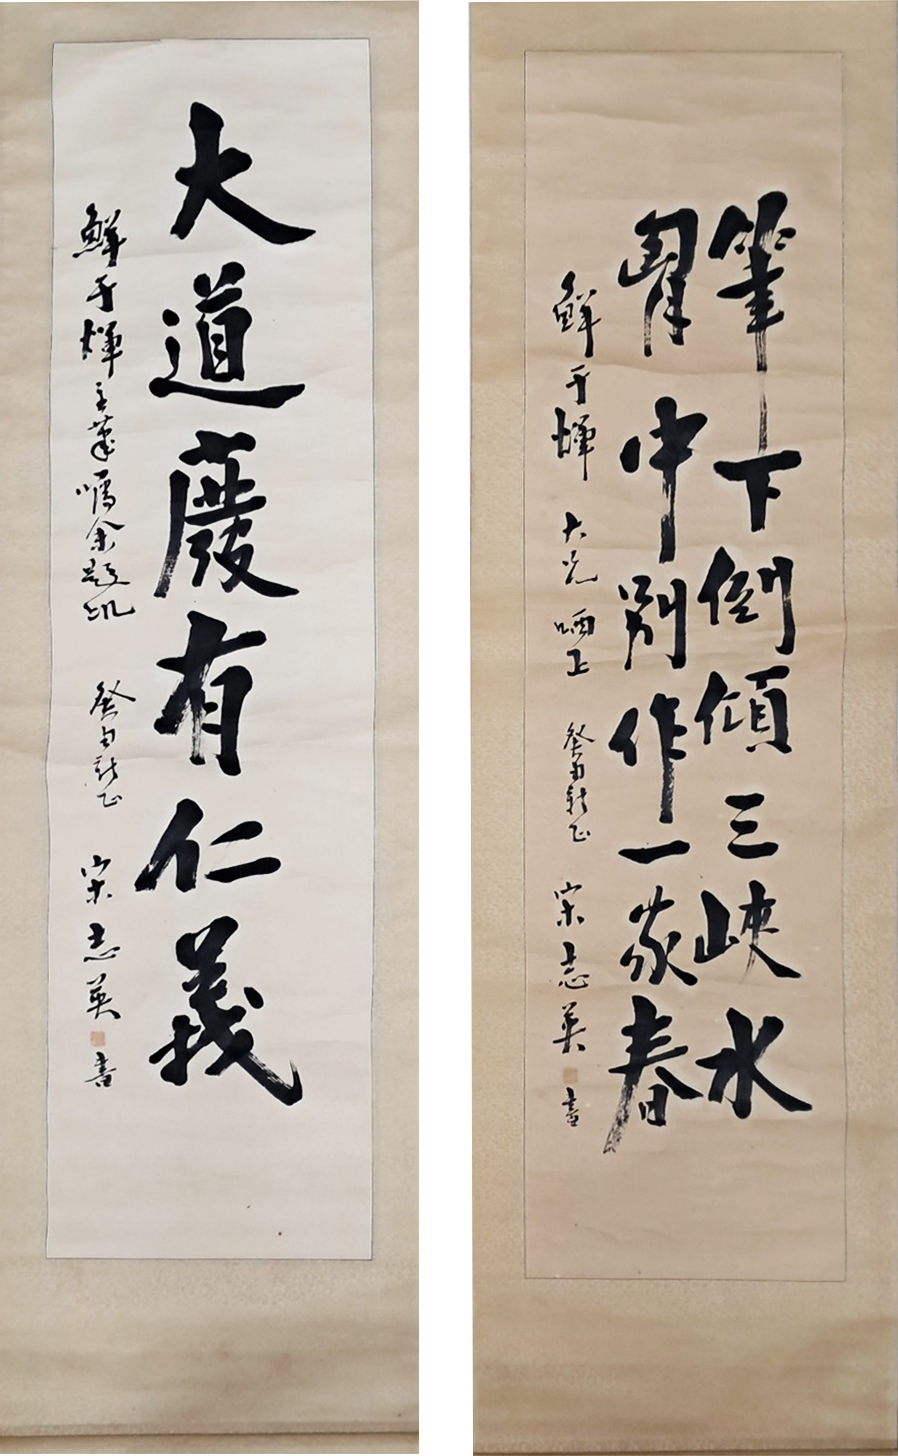 筆下倒傾三峽水
胷中別作一家春
鮮于煇大兄哂正 癸酉新正 宋志英書
大道廢有仁義
鮮于煇主董囑余題 癸酉新正 宋志英書